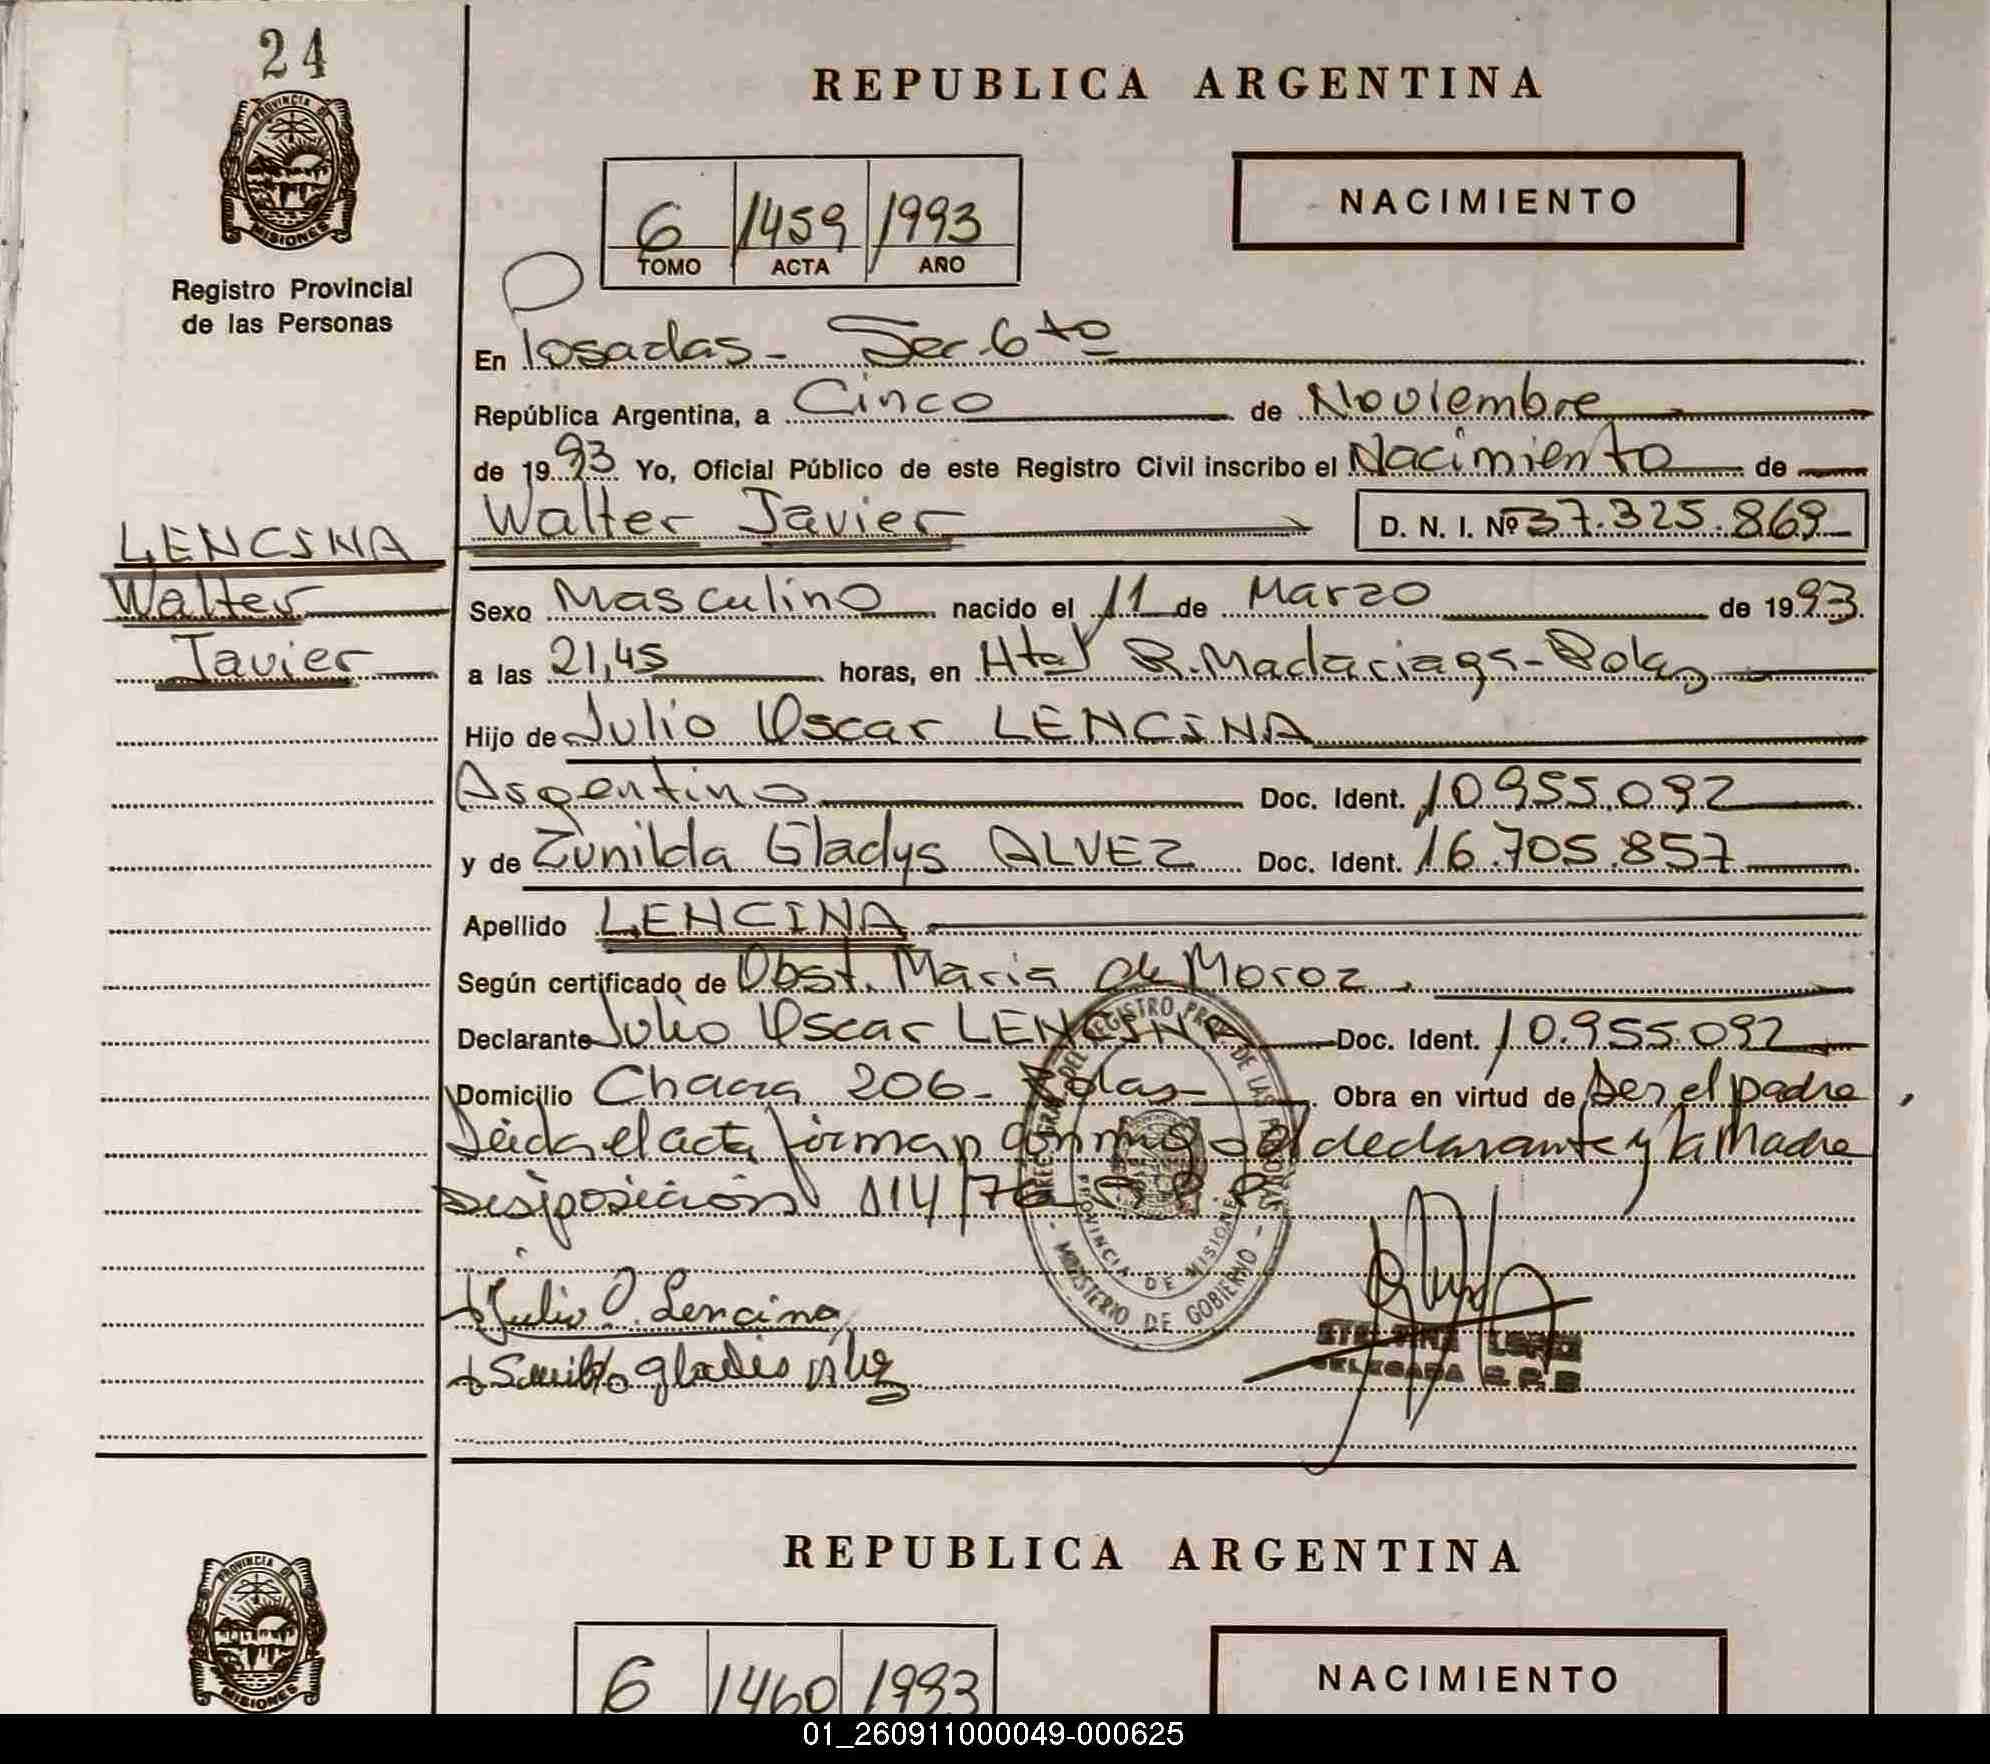 24
PROVINCIA DE
MISIONES
Registro Provincial
de las Personas
REPUBLICA ARGENTINA
6 1459 1993
TOMO ACTA AÑO
NACIMIENTO
En Posadas - Sec. 6 ta
República Argentina, a Cinco de Noviembre
de 1993 Yo, Oficial Público de este Registro Civil inscribo el Nacimiento de
Walter Javier D. N. I. Nº 37.325.869
LENCINA
Walter
Javier
Sexo Masculino nacido el 11 de Marzo de 1993.
a las 21,45 horas, en Htal R. Madariaga - Pdas
Hijo de Julio Oscar LENCINA
Argentino Doc. Ident. 10.955.092
y de Zunilda Gladys ALVEZ Doc. Ident. 16.705.857
Apellido LENCINA
Según certificado de Obst. Maria de Moroz
Declarante Julio Oscar LENCINA Doc. Ident. 10.955.092
Domicilio Chacra 206 - Pdas - Obra en virtud de Ser el padre
Leida el acta firman conmigo el declarante y la Madre
Disposición 114/76
REGISTRO DE LAS
PROVINCIA DE MISIONES
MINISTERIO DE GOBIERNO
Julio O. Lencina
gladis
LOPEZ
DELEGADA
PROVINCIA DE
MISIONES
REPUBLICA ARGENTINA
6 1460 1993
NACIMIENTO
01_260911000049-000625